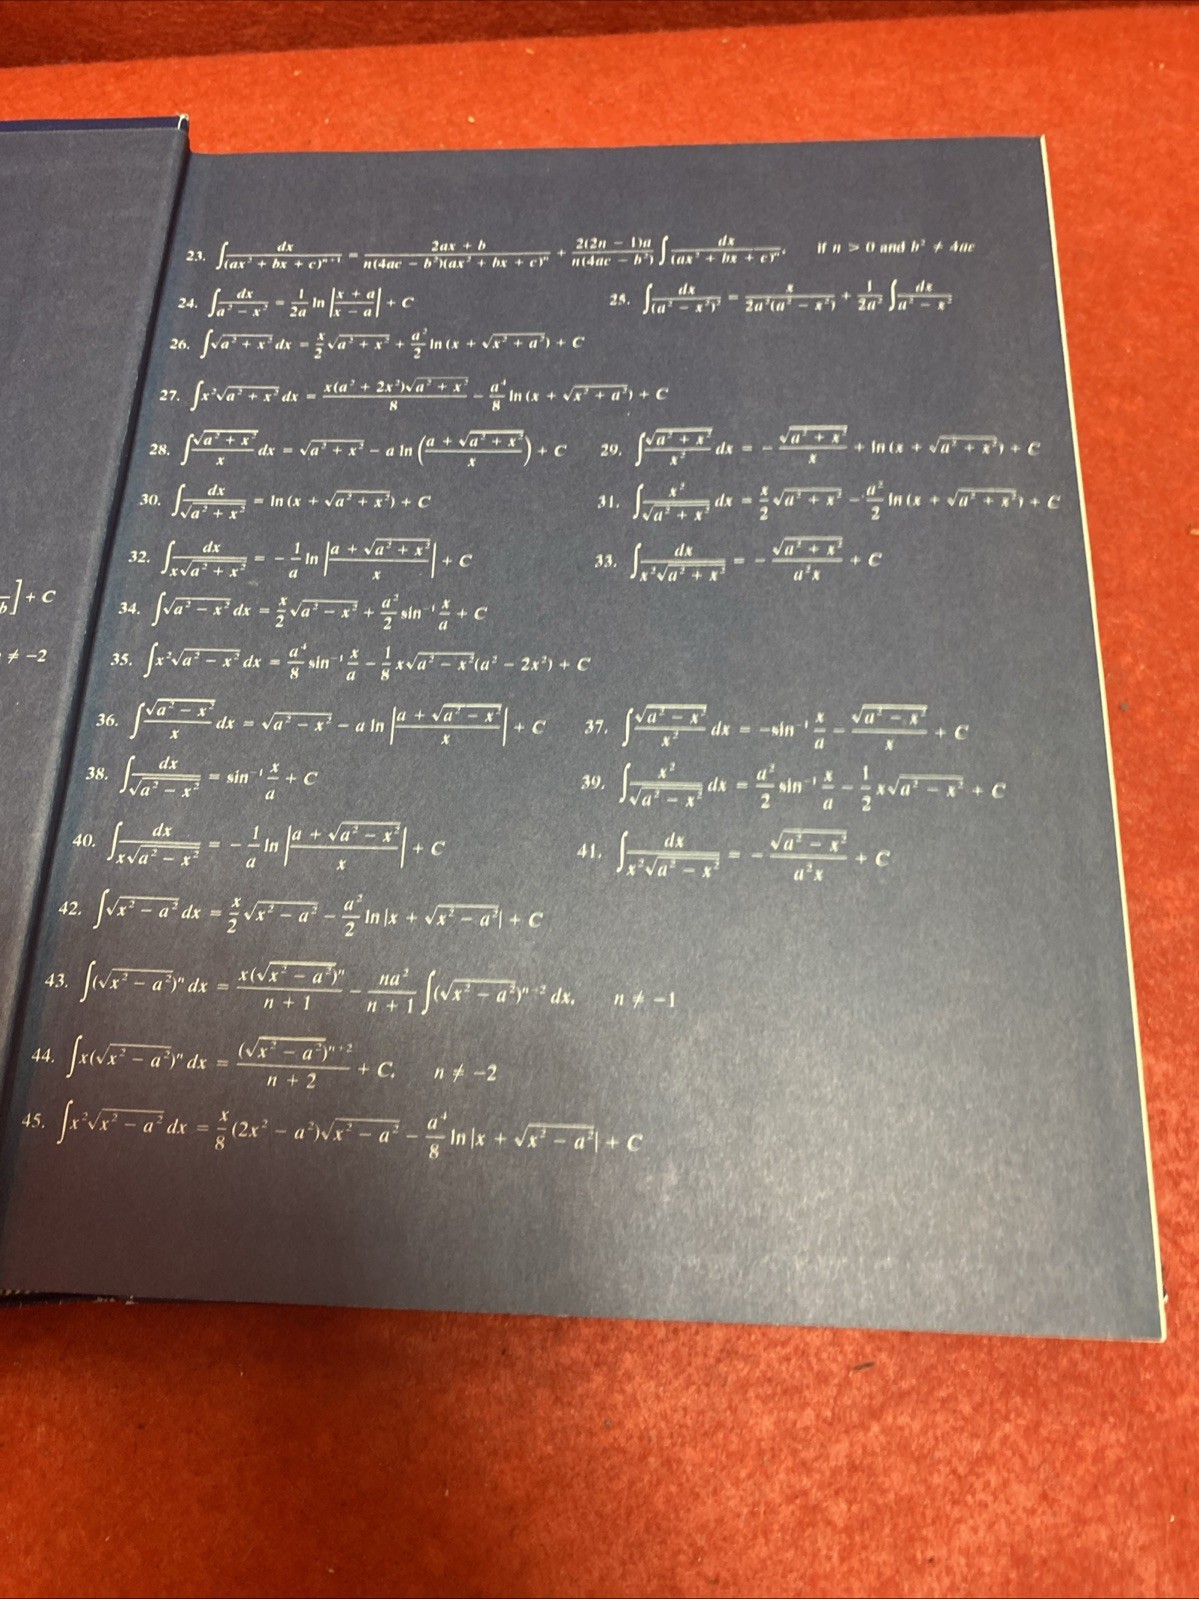 23. ∫ dx/(ax² + bx + c)ⁿ⁺¹ = (2ax + b)/(n(4ac − b²)(ax² + bx + c)ⁿ) + (2(2n − 1)a)/(n(4ac − b²)) ∫ dx/(ax² + bx + c)ⁿ, if n > 0 and b² ≠ 4ac
24. ∫ dx/(a² − x²) = (1/2a) ln |(x + a)/(x − a)| + C 25. ∫ dx/(a² − x²)² = x/(2a²(a² − x²)) + (1/2a²) ∫ dx/(a² − x²)
26. ∫ √(a² + x²) dx = (x/2)√(a² + x²) + (a²/2) ln (x + √(x² + a²)) + C
27. ∫ x²√(a² + x²) dx = (x(a² + 2x²)√(a² + x²))/8 − (a⁴/8) ln (x + √(x² + a²)) + C
28. ∫ (√(a² + x²)/x) dx = √(a² + x²) − a ln ((a + √(a² + x²))/x) + C 29. ∫ (√(a² + x²)/x²) dx = −√(a² + x²)/x + ln (x + √(a² + x²)) + C
30. ∫ dx/√(a² + x²) = ln (x + √(a² + x²)) + C 31. ∫ (x²/√(a² + x²)) dx = (x/2)√(a² + x²) − (a²/2) ln (x + √(a² + x²)) + C
32. ∫ dx/(x√(a² + x²)) = −(1/a) ln |(a + √(a² + x²))/x| + C 33. ∫ dx/(x²√(a² + x²)) = −√(a² + x²)/(a²x) + C
b] + C
34. ∫ √(a² − x²) dx = (x/2)√(a² − x²) + (a²/2) sin⁻¹ (x/a) + C
≠ −2
35. ∫ x²√(a² − x²) dx = (a⁴/8) sin⁻¹ (x/a) − (1/8) x√(a² − x²)(a² − 2x²) + C
36. ∫ (√(a² − x²)/x) dx = √(a² − x²) − a ln |(a + √(a² − x²))/x| + C 37. ∫ (√(a² − x²)/x²) dx = −sin⁻¹ (x/a) − √(a² − x²)/x + C
38. ∫ dx/√(a² − x²) = sin⁻¹ (x/a) + C 39. ∫ (x²/√(a² − x²)) dx = (a²/2) sin⁻¹ (x/a) − (1/2) x√(a² − x²) + C
40. ∫ dx/(x√(a² − x²)) = −(1/a) ln |(a + √(a² − x²))/x| + C 41. ∫ dx/(x²√(a² − x²)) = −√(a² − x²)/(a²x) + C
42. ∫ √(x² − a²) dx = (x/2)√(x² − a²) − (a²/2) ln |x + √(x² − a²)| + C
43. ∫ (√(x² − a²))ⁿ dx = x(√(x² − a²))ⁿ/(n + 1) − (na²/(n + 1)) ∫ (√(x² − a²))ⁿ⁻² dx, n ≠ −1
44. ∫ x(√(x² − a²))ⁿ dx = (√(x² − a²))ⁿ⁺²/(n + 2) + C, n ≠ −2
45. ∫ x²√(x² − a²) dx = (x/8)(2x² − a²)√(x² − a²) − (a⁴/8) ln |x + √(x² − a²)| + C